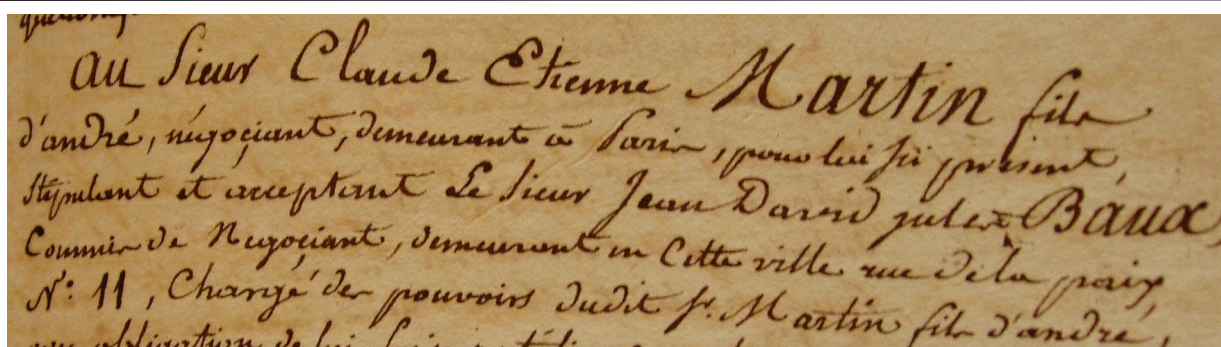 au Sieur Claude Etienne Martin fils
d'andré, négociant, demeurant à Paris, pour lui ici présent,
stipulant et acceptant Le Sieur Jean David jules Baux,
Commis de Negociant, demeurant en Cette ville rue de la paix
N.º 11, Chargé des pouvoirs dudit Sr. Martin fils d'andré,
obligation de lui